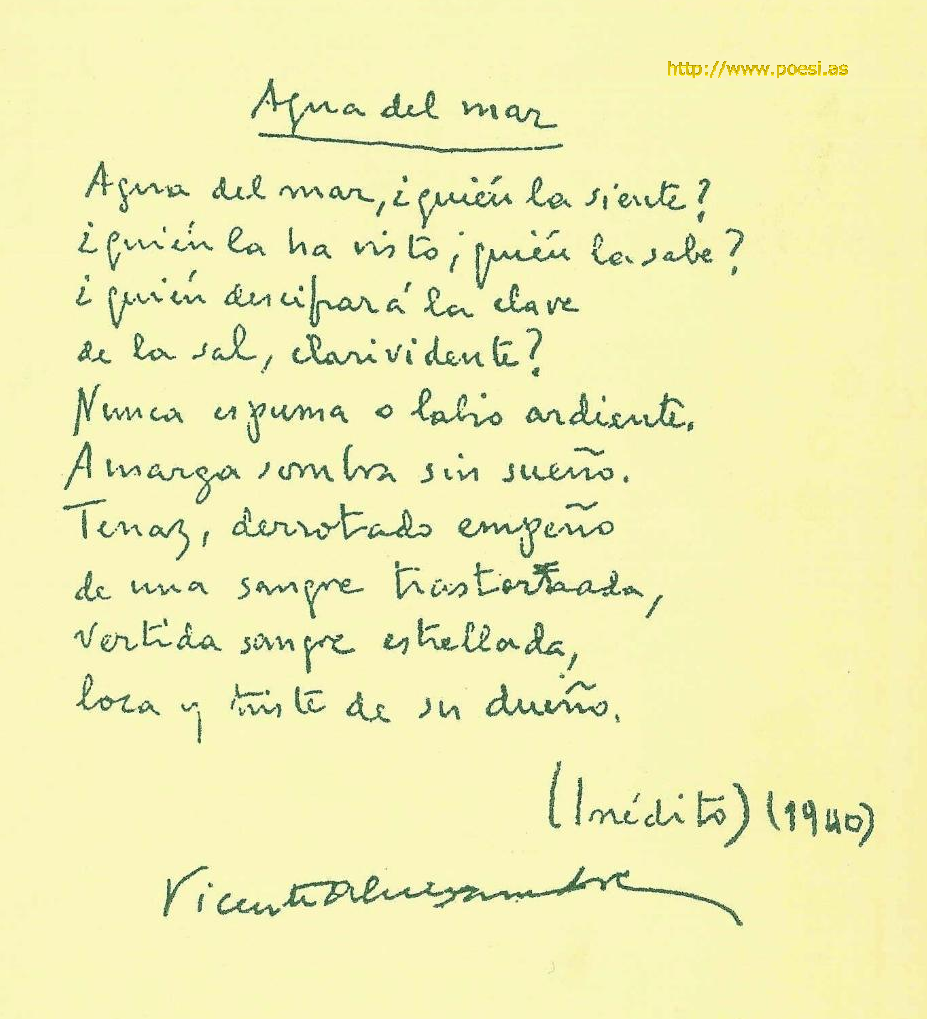 http://www.poesi.as
Agua del mar
Agua del mar, ¿quién la siente?
¿quién la ha visto, quién la sabe?
¿quién descifrará la clave
de la sal, clarividente?
Nunca espuma o labio ardiente.
Amarga sombra sin sueño.
Tenaz, derrotado empeño
de una sangre trastornada,
vertida sangre estrellada,
loca y triste de su dueño.
(Inédito) (1940)
Vicente Aleixandre